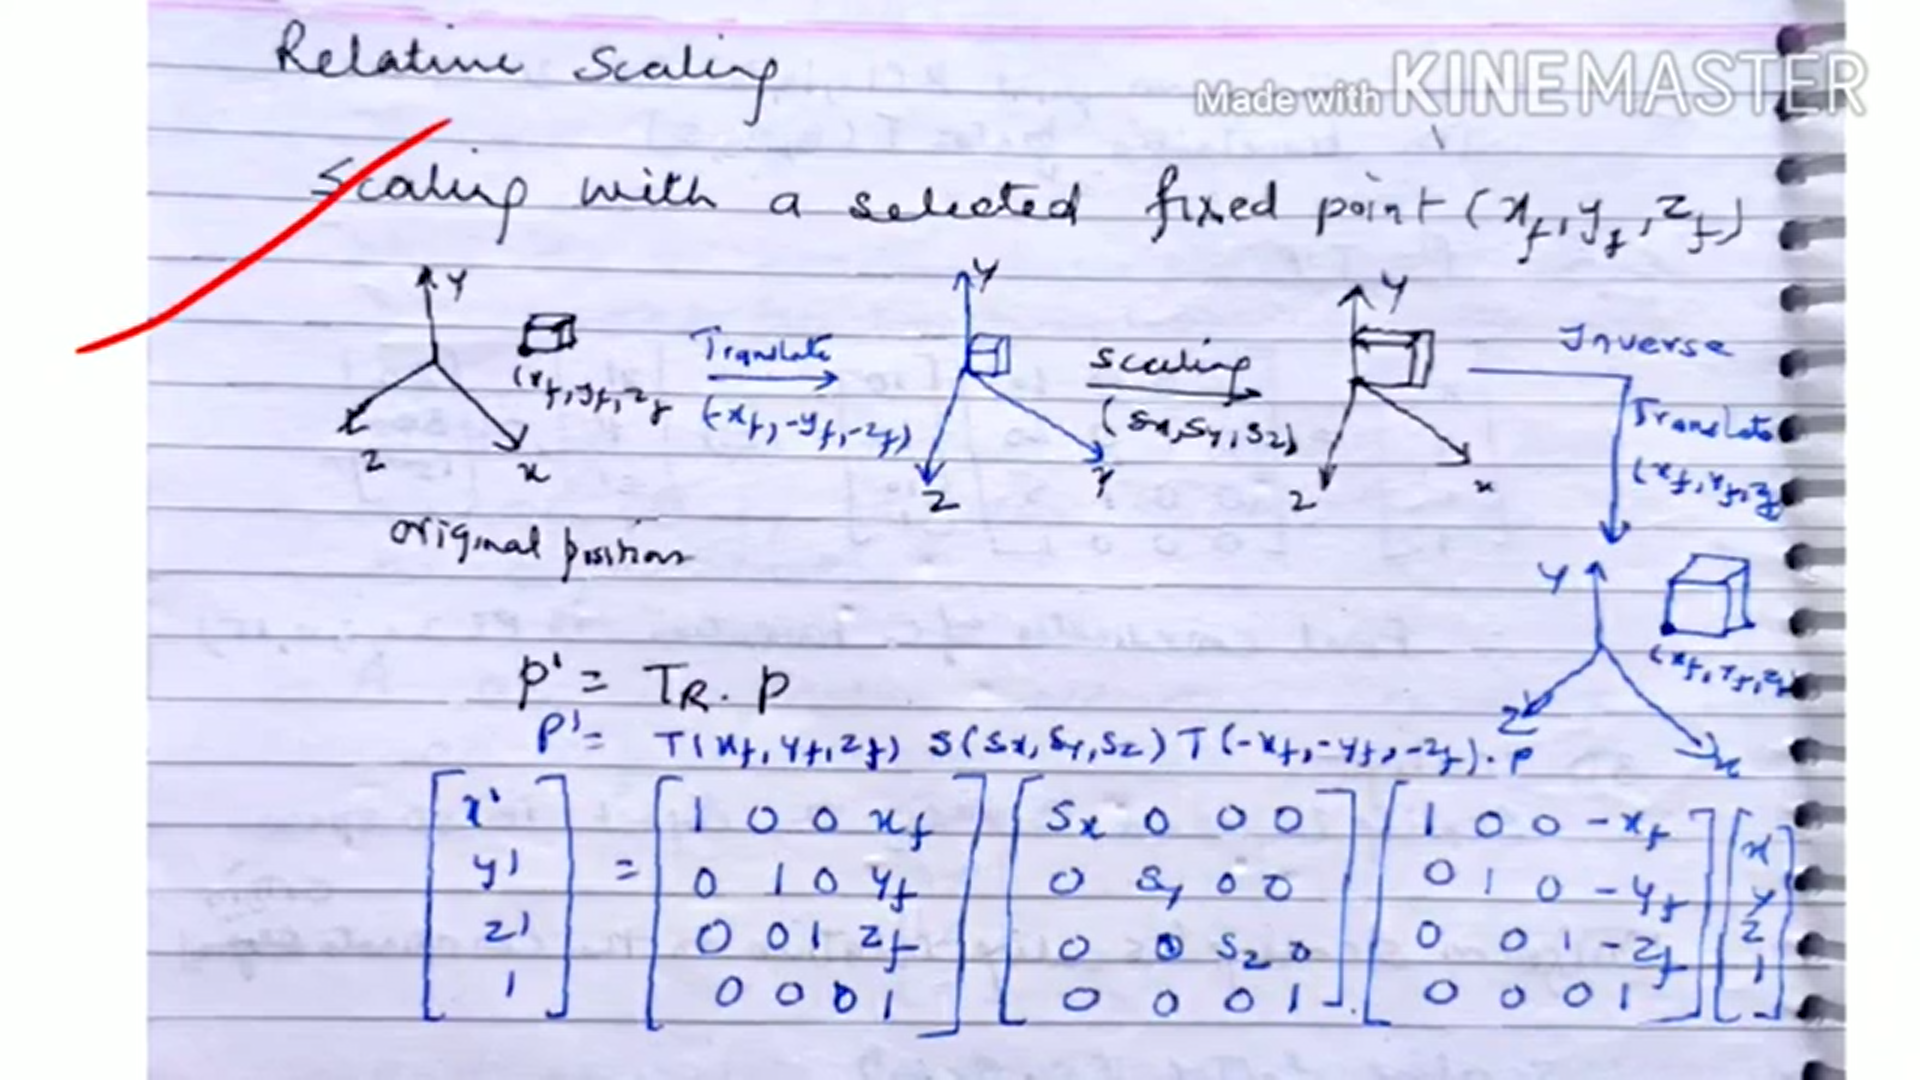 Relative Scaling
Made with KINEMASTER
Scaling with a selected fixed point (xf, yf, zf)
Y
Z
x
(xf, yf, zf
original position
Translate
(-xf, -yf, -zf)
Y
Z
Scaling
(Sx, Sy, Sz)
Y
Z
x
Inverse
Translate
(xf, Yf, zf
Y
Z
x
(xf, Yf, zf)
P' = TR. P
P' = T(xf, yf, zf) S(Sx, Sy, Sz) T(-xf, -yf, -zf). P
[x' = [1 0 0 xf [Sx 0 0 0 [1 0 0 -xf [x
y' 0 1 0 yf 0 Sy 0 0 0 1 0 -yf y
z' 0 0 1 zf 0 0 Sz 0 0 0 1 -zf z
1] 0 0 0 1] 0 0 0 1] 0 0 0 1] 1]